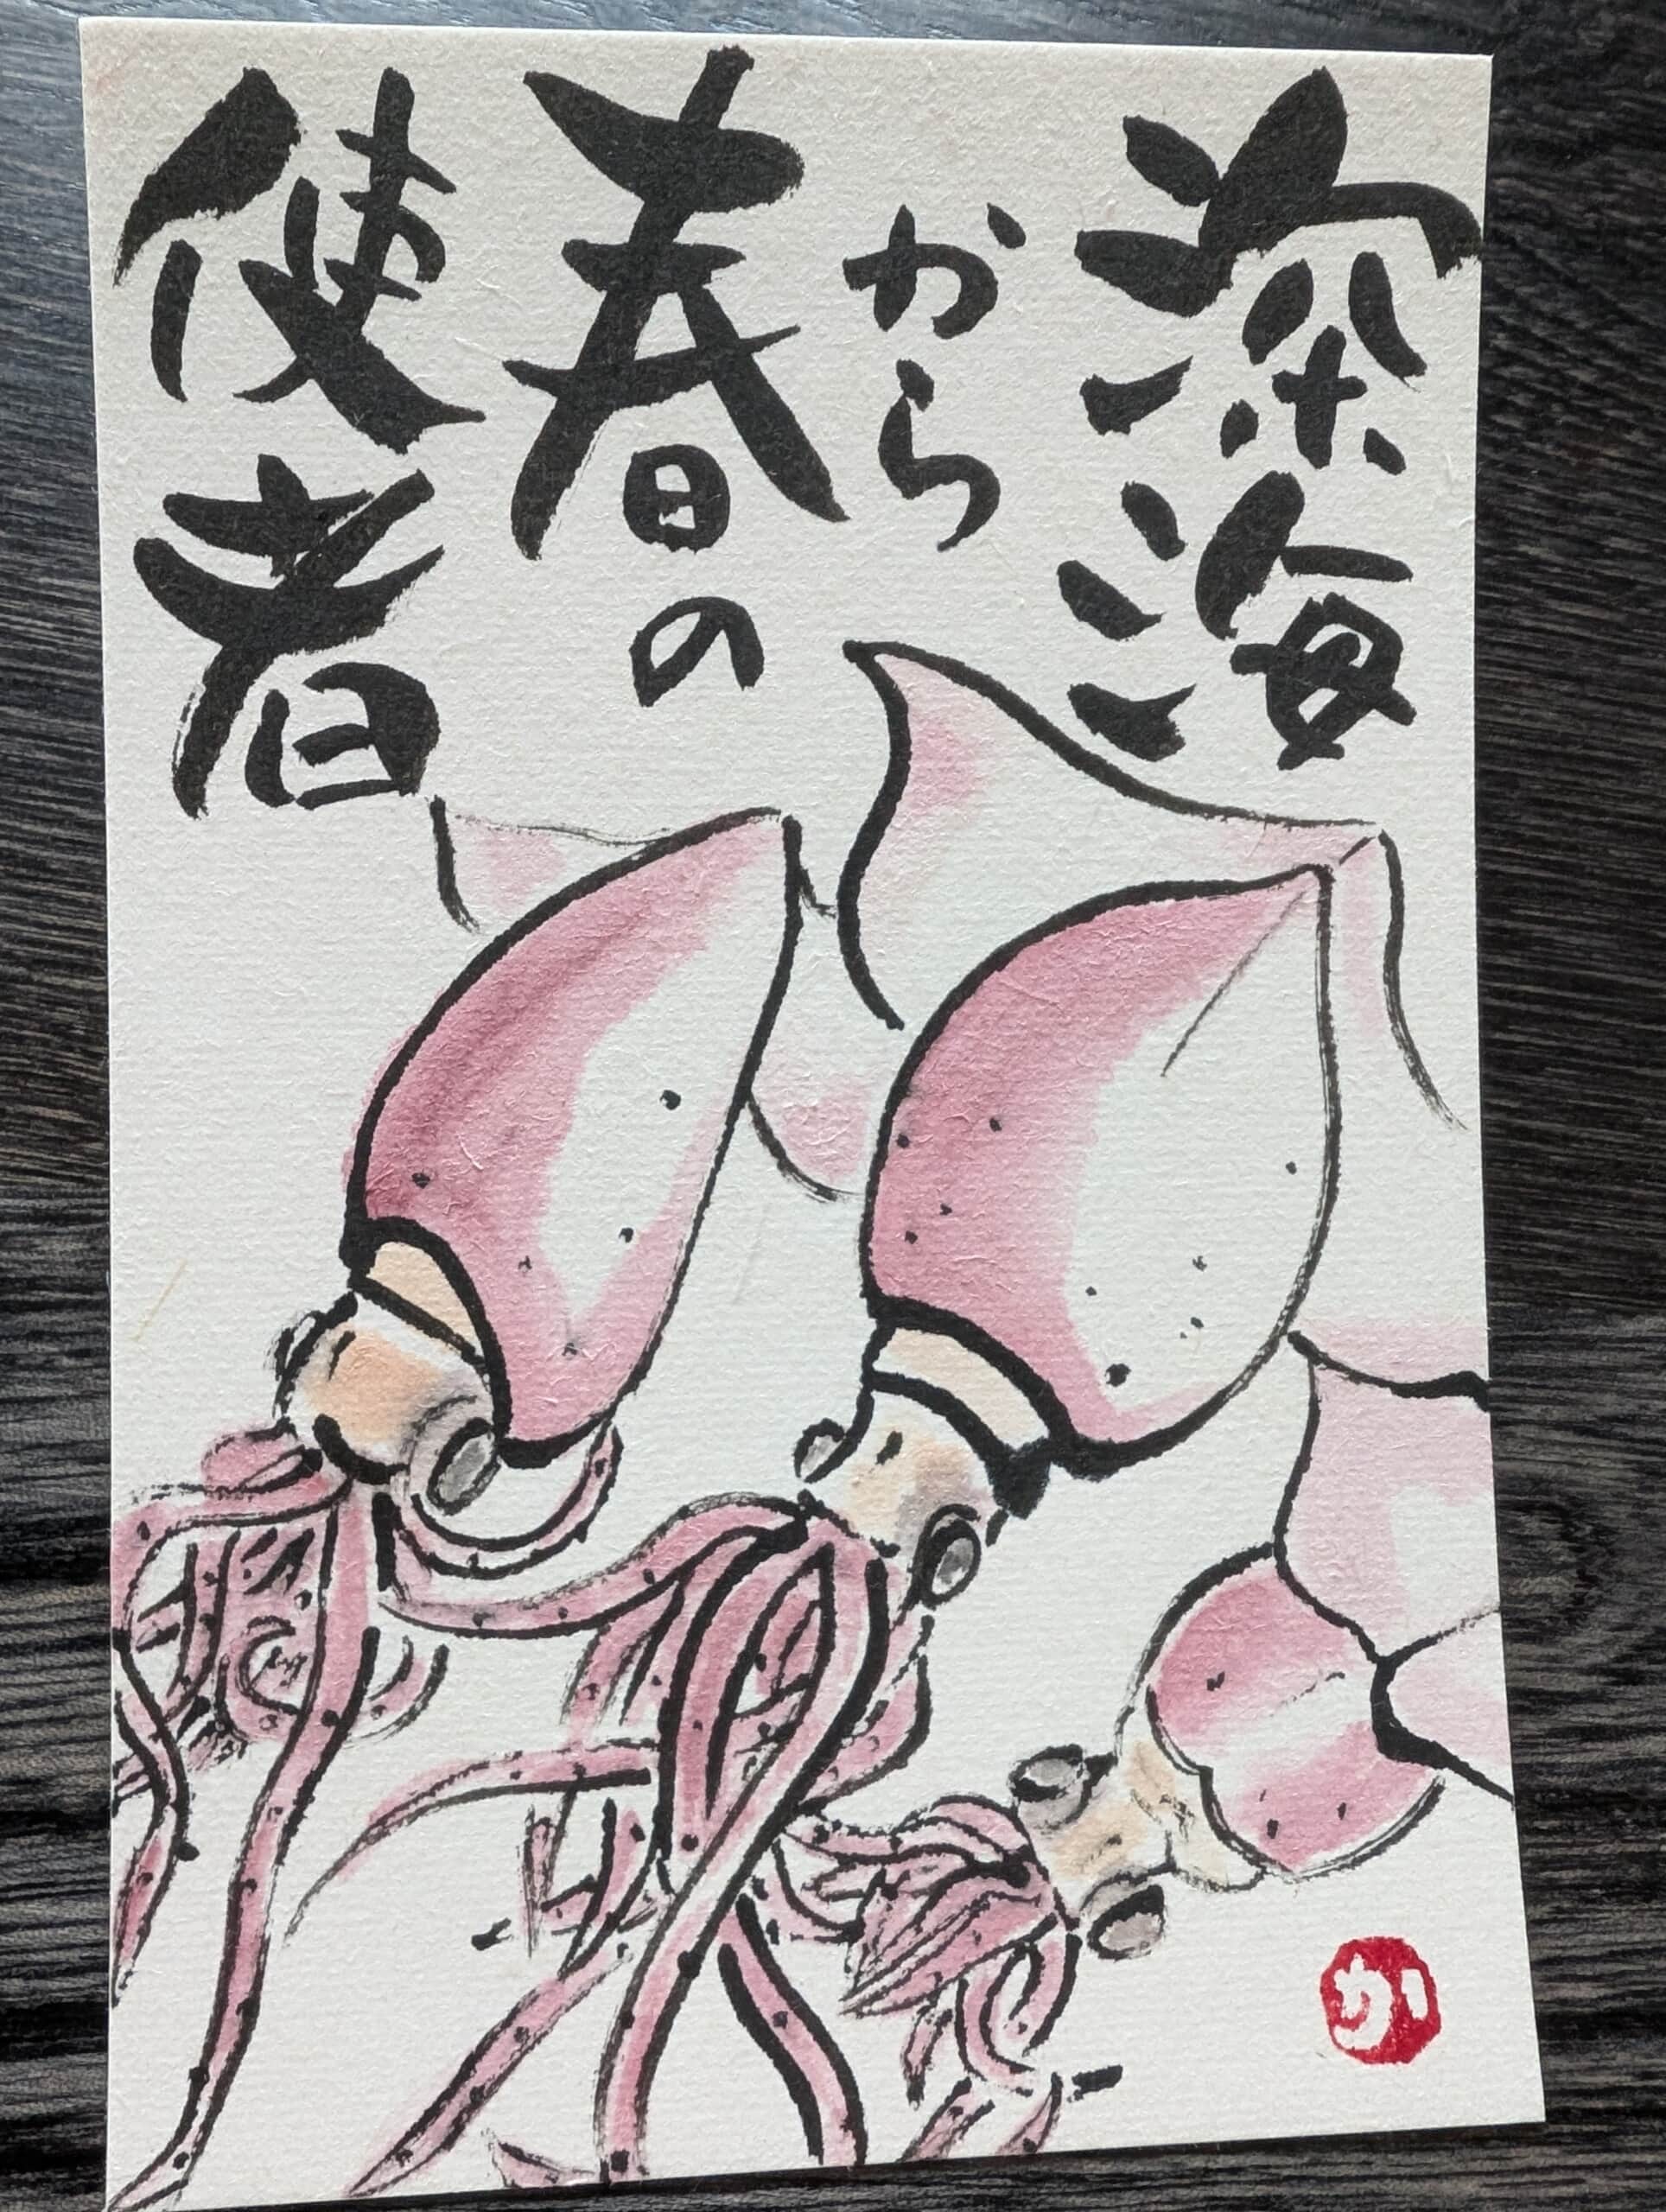 深海
から
春の
使者